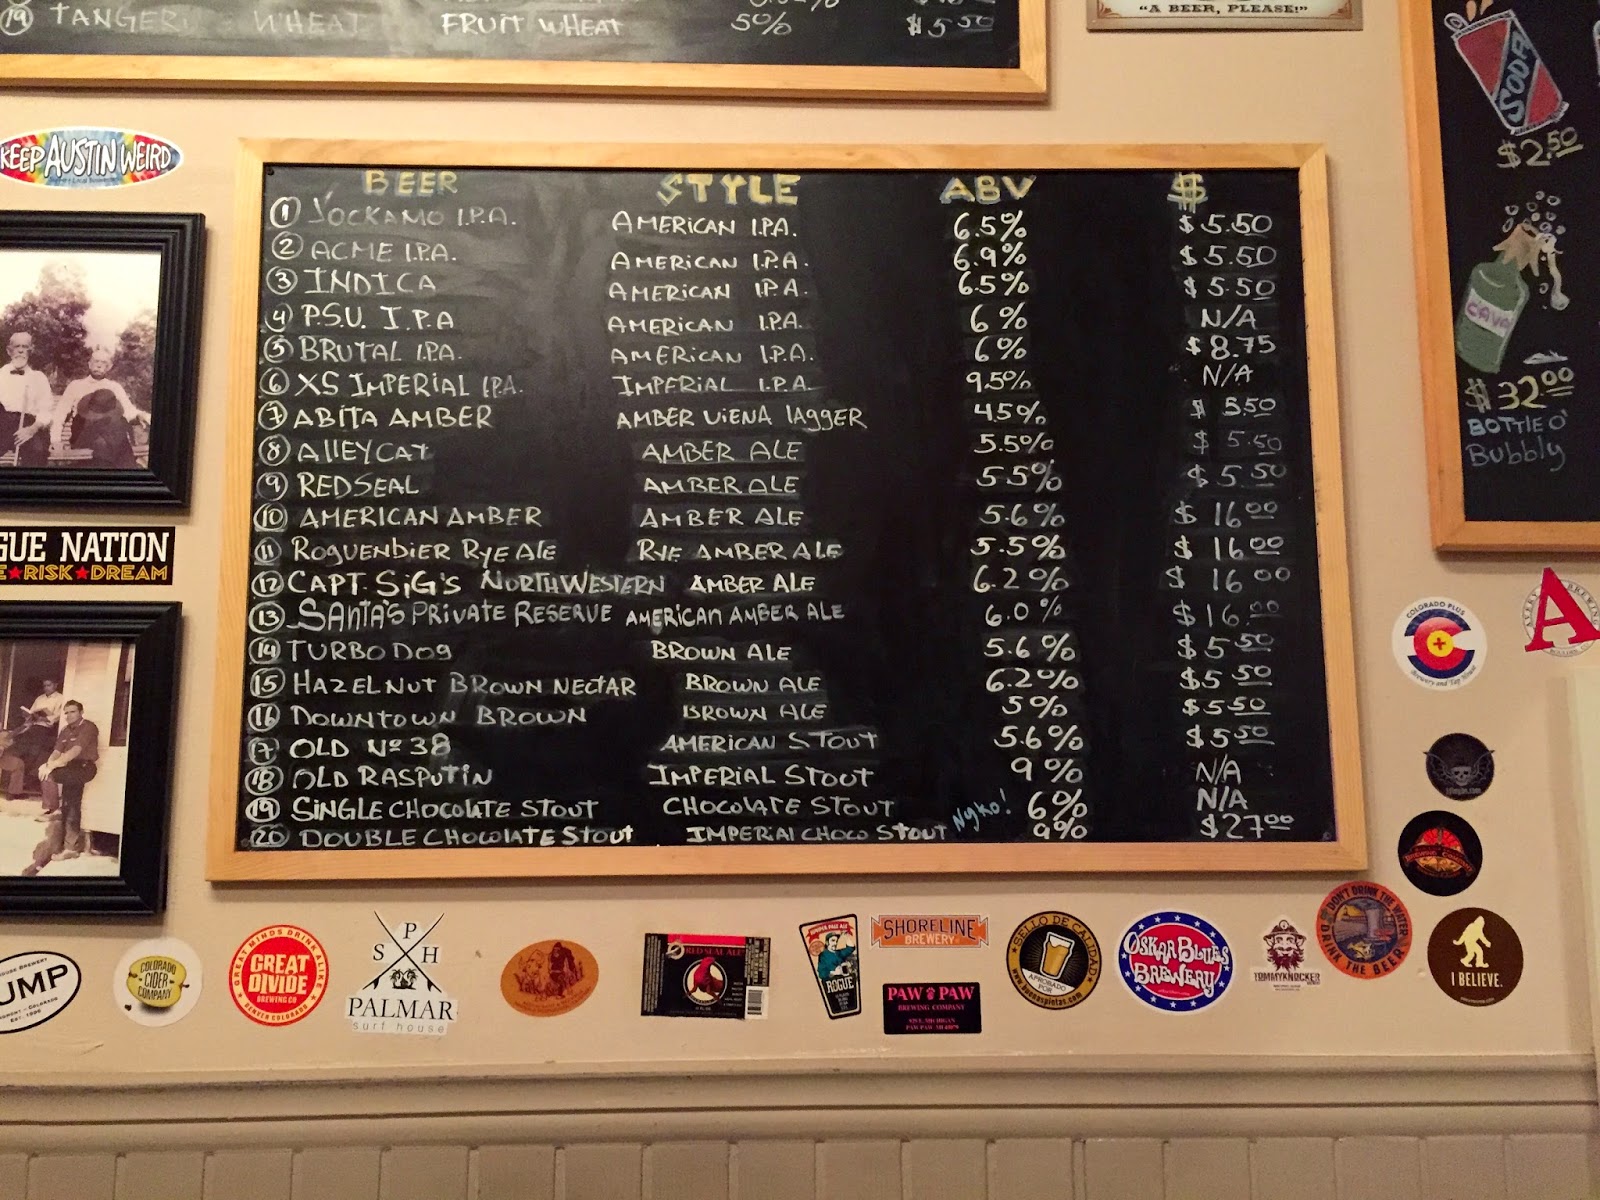 19 TANGER WHEAT FRUIT WHEAT 5% $5.50
"A BEER, PLEASE!"
SODA
$2.50
CAVA
$32.00
BOTTLE O'
Bubbly
KEEP AUSTIN WEIRD
BEER STYLE ABV $
1 JOCKAMO I.P.A. AMERICAN I.P.A. 6.5% $5.50
2 ACME I.P.A. AMERICAN I.P.A. 6.9% $5.50
3 INDICA AMERICAN I.P.A. 6.5% $5.50
4 P.S.U. I.P.A AMERICAN I.P.A. 6% N/A
5 BRUTAL I.P.A. AMERICAN I.P.A. 6% $8.75
6 XS IMPERIAL I.P.A. IMPERIAL I.P.A. 9.5% N/A
7 ABITA AMBER AMBER VIENA LAGGER 4.5% $5.50
8 AllEYCAT AMBER ALE 5.5% $5.50
9 REDSEAL AMBER ALE 5.5% $5.50
10 AMERICAN AMBER AMBER ALE 5.6% $16.00
11 ROGUENBIER RYE ALE RYE AMBER ALE 5.5% $16.00
12 CAPT. SiG'S NORTHWESTERN AMBER ALE 6.2% $16.00
13 SANTA'S PRIVATE RESERVE AMERICAN AMBER ALE 6.0% $16.00
14 TURBO DOG BROWN ALE 5.6% $5.50
15 HAZELNUT BROWN NECTAR BROWN ALE 6.2% $5.50
16 DOWNTOWN BROWN BROWN ALE 5% $5.50
17 OLD Nº 38 AMERICAN STOUT 5.6% $5.50
18 OLD RASPUTIN IMPERIAL STOUT 9% N/A
19 SINGLE CHOCOLATE STOUT CHOCOLATE STOUT 6% N/A
20 DOUBLE CHOCOLATE STOUT IMPERIAL CHOCO STOUT 9% $27.00
GUE NATION
E★RISK★DREAM
COLORADO PLUS
Brewery and Tap House
A
UMP
EST. 1996
COLORADO
CIDER
COMPANY
GREAT MINDS DRINK ALIKE
GREAT
DIVIDE
BREWING CO
DENVER COLORADO
S P H
PALMAR
surf house
RED SEAL ALE
ROGUE
SHORELINE
BREWERY
PAW PAW
BREWING COMPANY
SELLO DE CALIDAD
APROBADO
POR
OSKAR BLUES
BREWERY
TOMMYKNOCKER
DON'T DRINK THE WATER
DRINK THE BEER
I BELIEVE.